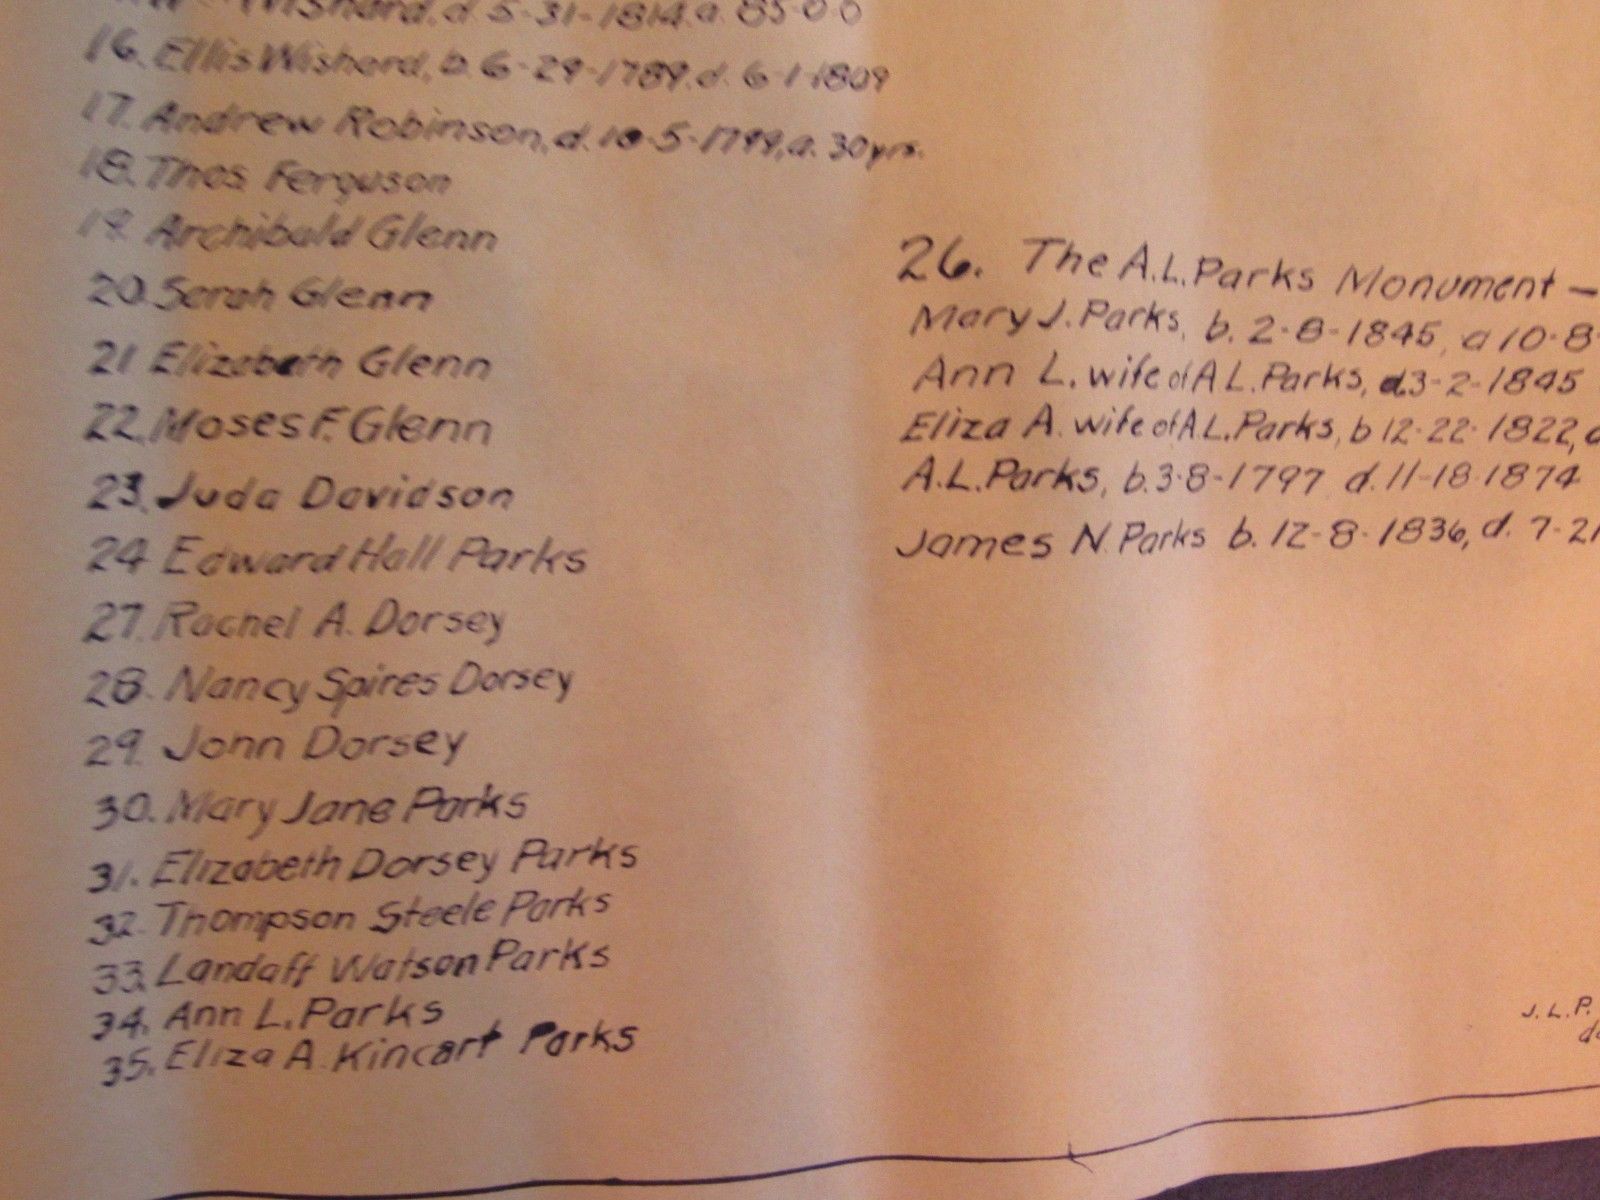 Wishard, d. 5-31-1814, a. 85-0-0
16. Ellis Wishard, b. 6-29-1789, d. 6-1-1809
17. Andrew Robinson, d. 10-5-1799, a. 30 yrs.
18. Thos Ferguson
19. Archibald Glenn
20. Sarah Glenn
21 Elizabeth Glenn
22. Moses F. Glenn
23. Juda Davidson
24 Edward Hall Parks
27. Rachel A. Dorsey
28. Nancy Spires Dorsey
29. John Dorsey
30. Mary Jane Parks
31. Elizabeth Dorsey Parks
32. Thompson Steele Parks
33. Landaff Watson Parks
34. Ann L. Parks
35. Eliza A. Kincart Parks
26. The A.L. Parks Monument –
Mary J. Parks, b. 2-8-1845, a 10-8-
Ann L. wife of A L. Parks, d 3-2-1845
Eliza A. wife of A.L. Parks, b 12-22-1822, d
A.L. Parks, b. 3-8-1797 d. 11-18-1874
James N. Parks b. 12-8-1836, d. 7-21
J.L.P.